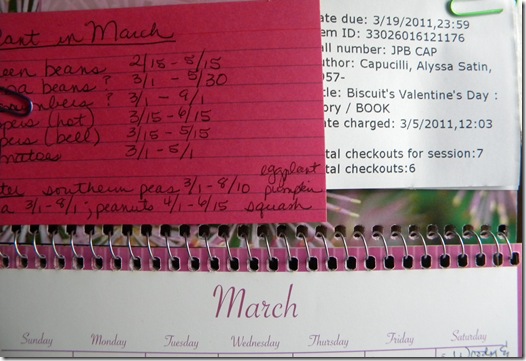 lant in March
een beans 2/15 - 5/15
a beans ? 3/1 - 5/30
umbers ? 3/1 - 9/1
pers (hot) 3/15 - 6/15
pers (bell) 3/15 - 5/15
matoes 3/1 - 5/1
ter southern peas 3/1 - 8/10
a 3/1 - 8/1; peanuts 4/1 - 6/15
eggplant
pumpkin
squash
ate due: 3/19/2011,23:59
em ID: 33026016121176
all number: JPB CAP
uthor: Capucilli, Alyssa Satin,
957-
tle: Biscuit's Valentine's Day :
ory / BOOK
ate charged: 3/5/2011,12:03
tal checkouts for session:7
tal checkouts:6
March
Sunday Monday Tuesday Wednesday Thursday Friday Saturday